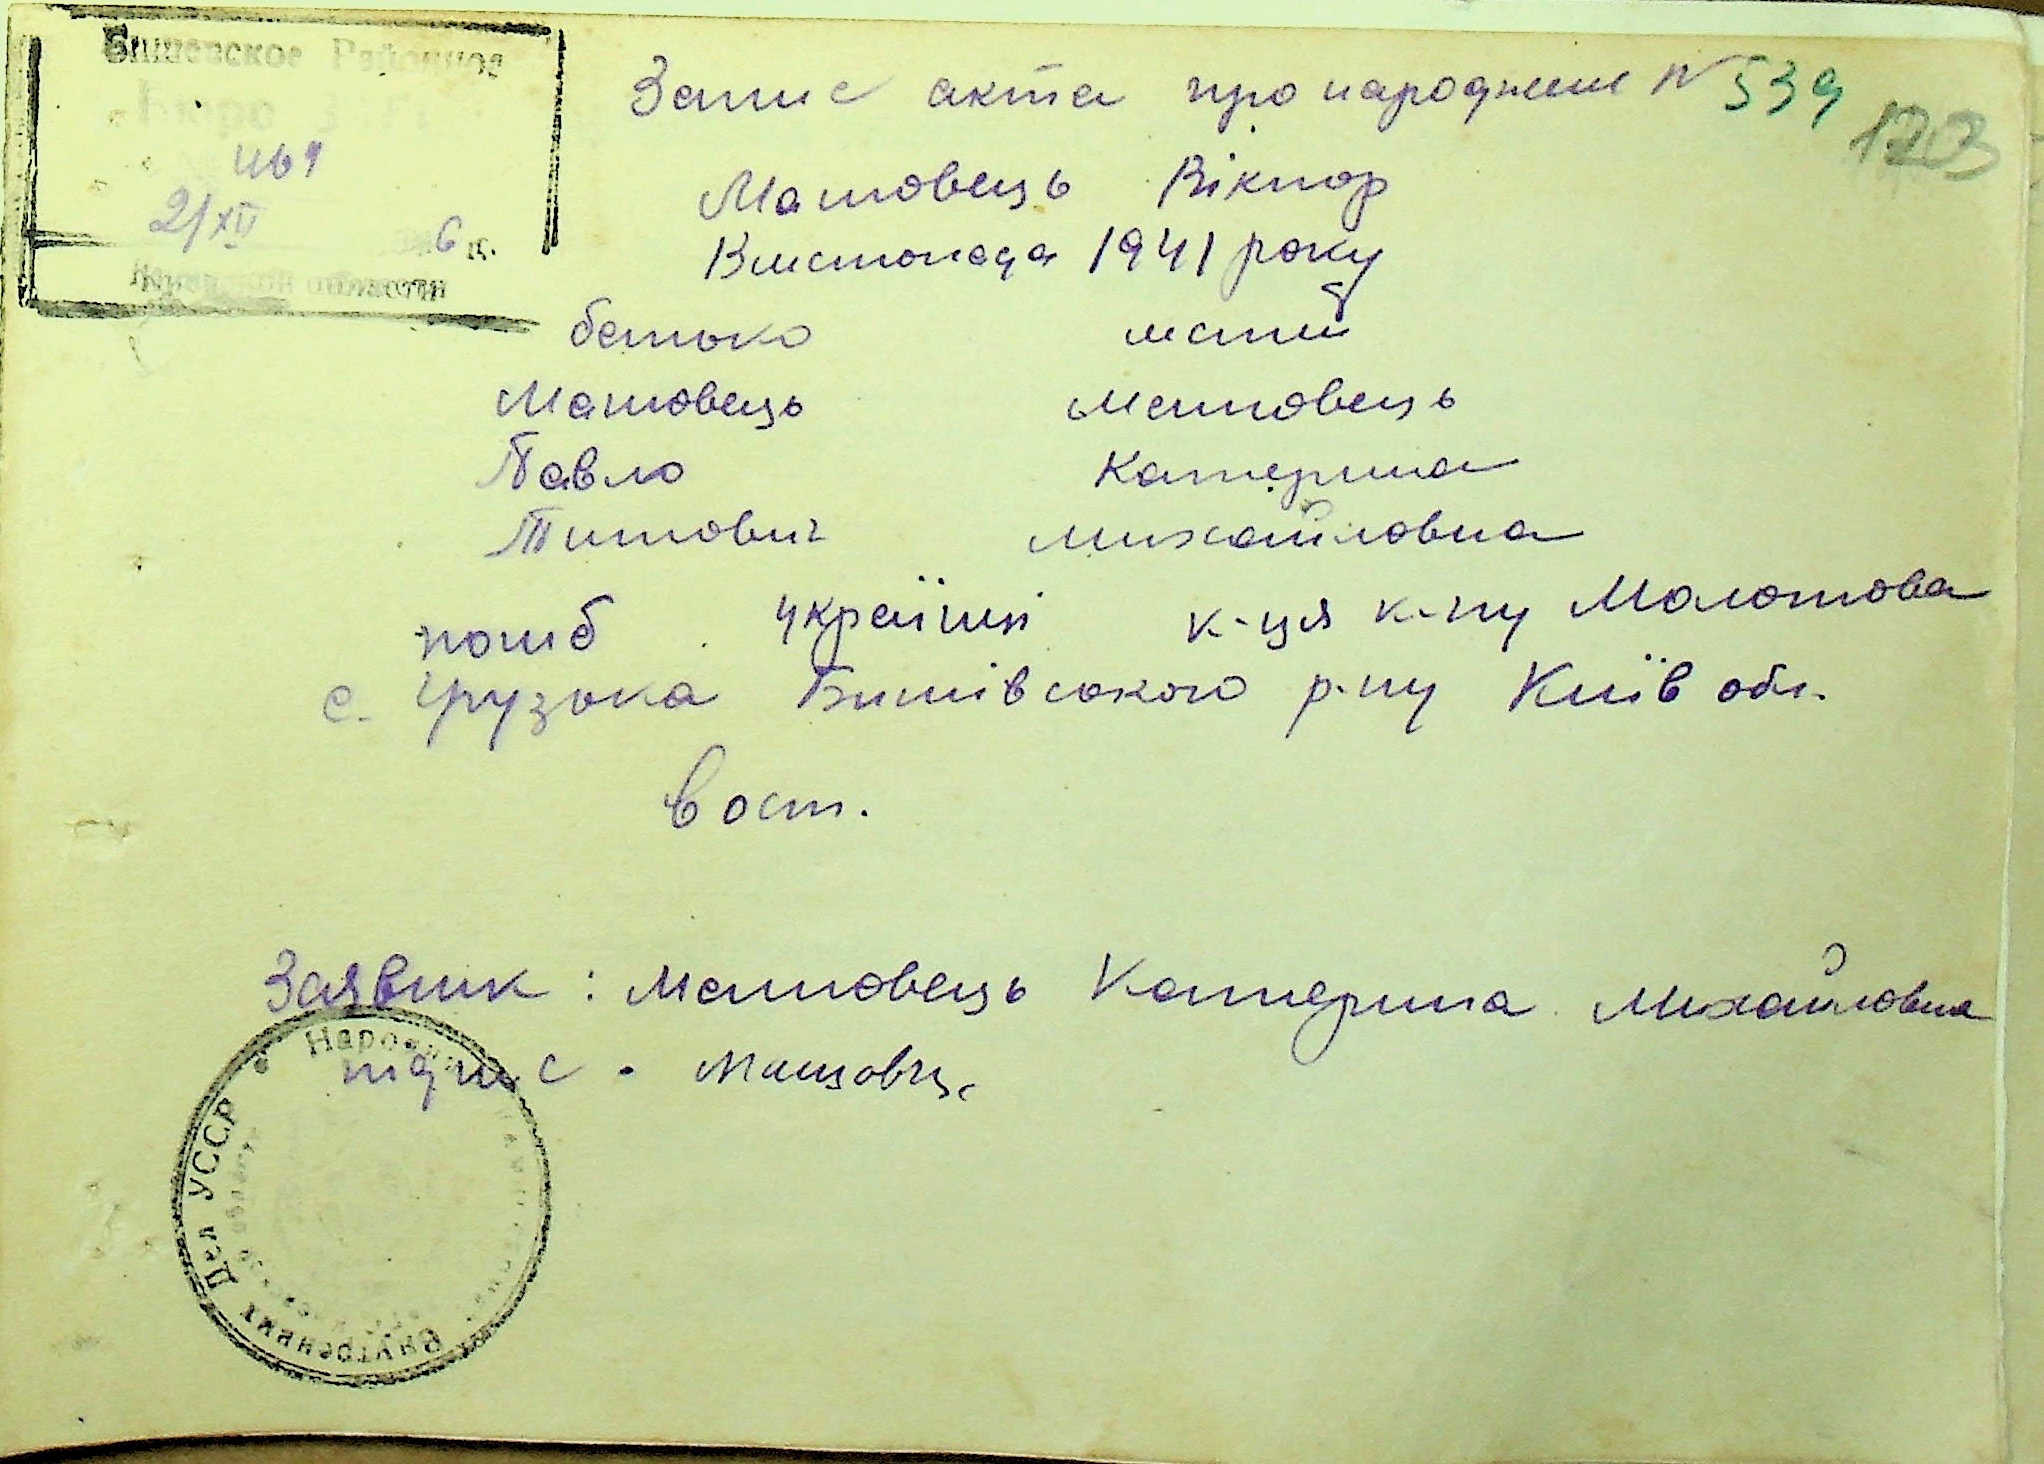 Бишевское Районное
Бюро
461
21/XII 6 г.
Киевской области
Запис акта про народження N 539
123
Матовець Віктор
13 листопада 1941 року
батько мати
Матовець Матовець
Павло Катерина
Титович Михайловна
погиб українці к-ця к-пу Молотова
с. Грузька Бишівського р-ну Київ обл.
вост.
Заявник: Матовець Катерина Михайловна
підпис.
Народный
Внутренних Дел УССР